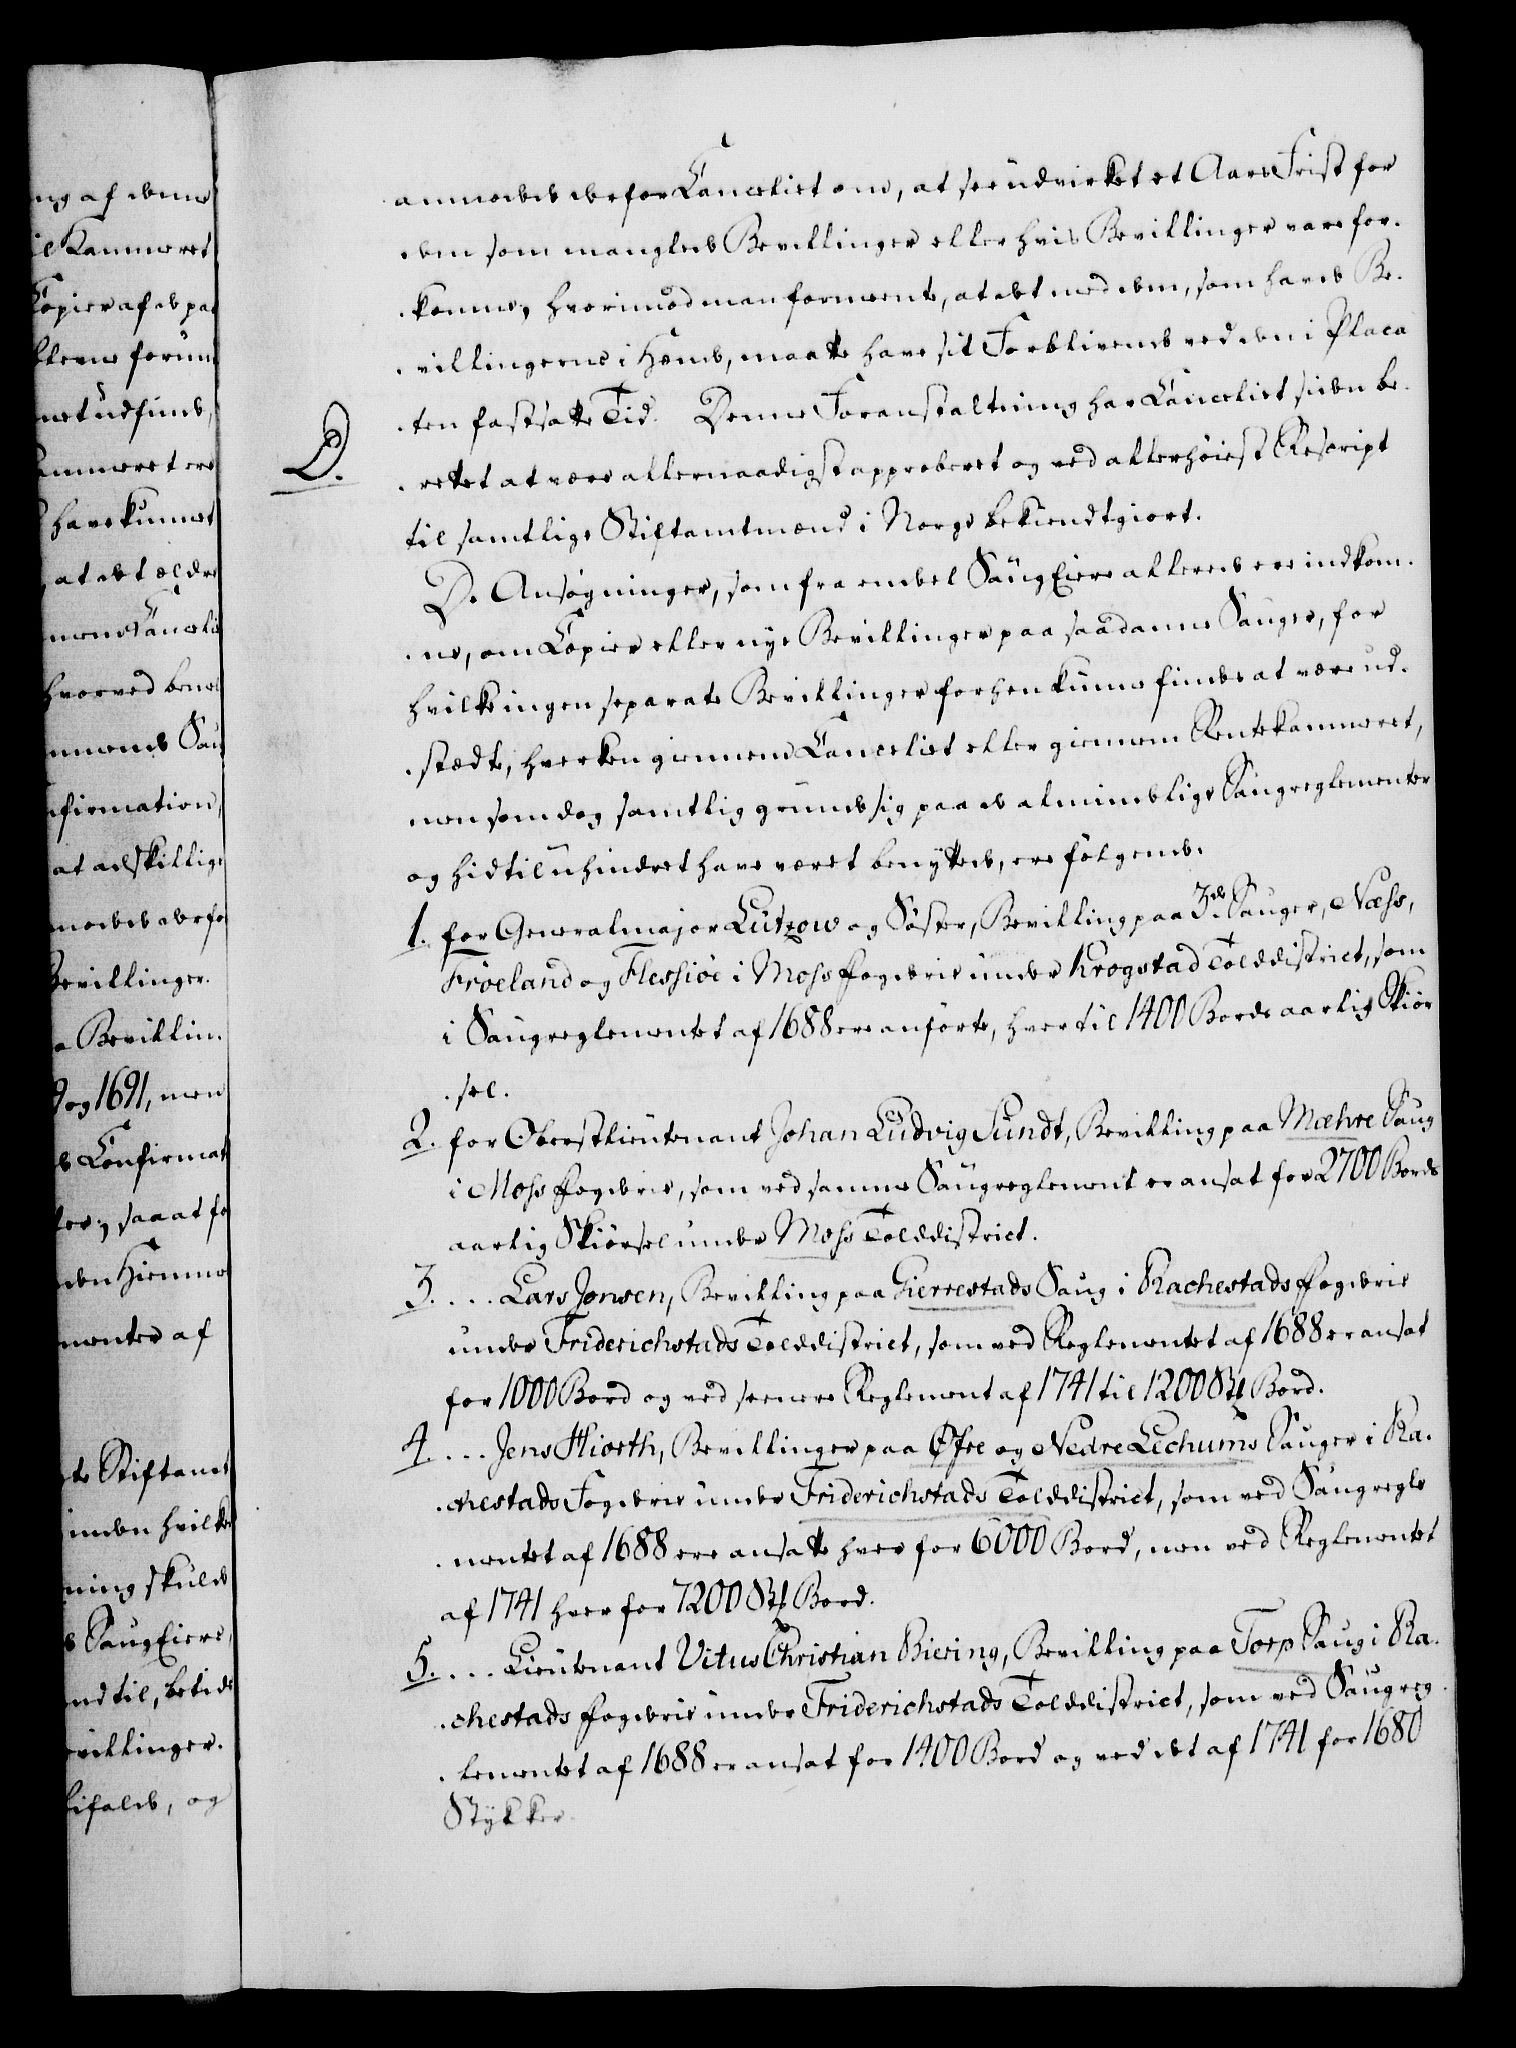 ng af denne
il Kammeret
Copier af de paa
net udfinde,
ammeret ere
have kunnet
at det ældre
hvorved bem
nfirmation,
at adskillige
Bevillinger.
e Bevillin-
og 1691, men
Confirmat
, saa at fo
den Hiemme
menter af
te Stiftamt
inden hvilken
ning skulde
Saug Eiere,
nd til, betids
evillinger.
tifalde, og
anmodede derfor Cancelliet om, at see udvirket et Aars Frist for
dem som manglede Bevillinger eller hvis Bevillinger vare for-
komne, hvorimod man formeente, at det med dem, som havde Be-
villingerne i Hænde, maatte have sit Forblivende ved den i Placa
ten fastsatte Tid. Denne Foranstaltning har Cancelliet siden be-
D.
rettet at være allernaadigst approberet og ved allerhøiest Rescript
til samtlige Stiftamtmænd i Norge bekiendtgiort.
De Ansøgninger, som fra endeel Saug Eiere allerede ere indkom-
ne, om Copier eller nye Bevillinger paa saadanne Sauger, for
hvilke ingen separate Bevillinger forhen kunne findes at være ud-
stædte, hverken giennem Cancelliet eller giennem Rentekammeret,
men som dog samtlig grunde sig paa de almindelige Saugreglementer
og hidtil uhindret have været benyttede, ere følgende.
1. for Generalmajor Lützow og Søster, Bevilling paa 3de Sauger, Næss,
Frøeland og Flessiøe i Moss Fogderie under Krogstad Tolddistrict, som
i Saugreglementet af 1688 ere anførte, hver til 1400 Bords aarlig Skiør
sel.
2. for Oberstlieutenant Johan Ludvig Sundt, Bevilling paa Mæhre Saug
i Moss Fogderie, som ved samme Saugreglement er ansat for 2700 Bords
aarlig Skiørsel under Moss Tolddistrict.
3. ... Lars Jonsen, Bevilling paa Gierrestads Saug i Rachestads Fogderie
under Friderichstads Tolddistrict, som ved Reglementet af 1688 er ansat
for 1000 Bord og ved seenere Reglement af 1741 til 1200 Stk Bord.
4. ... Jens Hiorth, Bevillinger paa Øfre og Nedre Lechums Sauger i Ra-
chestads Fogderie under Friderichstads Tolddistrict, som ved Saugregle
mentet af 1688 ere ansatte hver for 6000 Bord, men ved Reglementet
af 1741 hver for 7200 Stk Bord.
5. ... Lieutenant Vitus Christian Biering, Bevilling paa Torp Saug i Ra-
chestads Fogderie under Friderichstads Tolddistrict, som ved Saugreg-
lementet af 1688 er ansat for 1400 Bord og ved det af 1741 for 1680
Stykker.